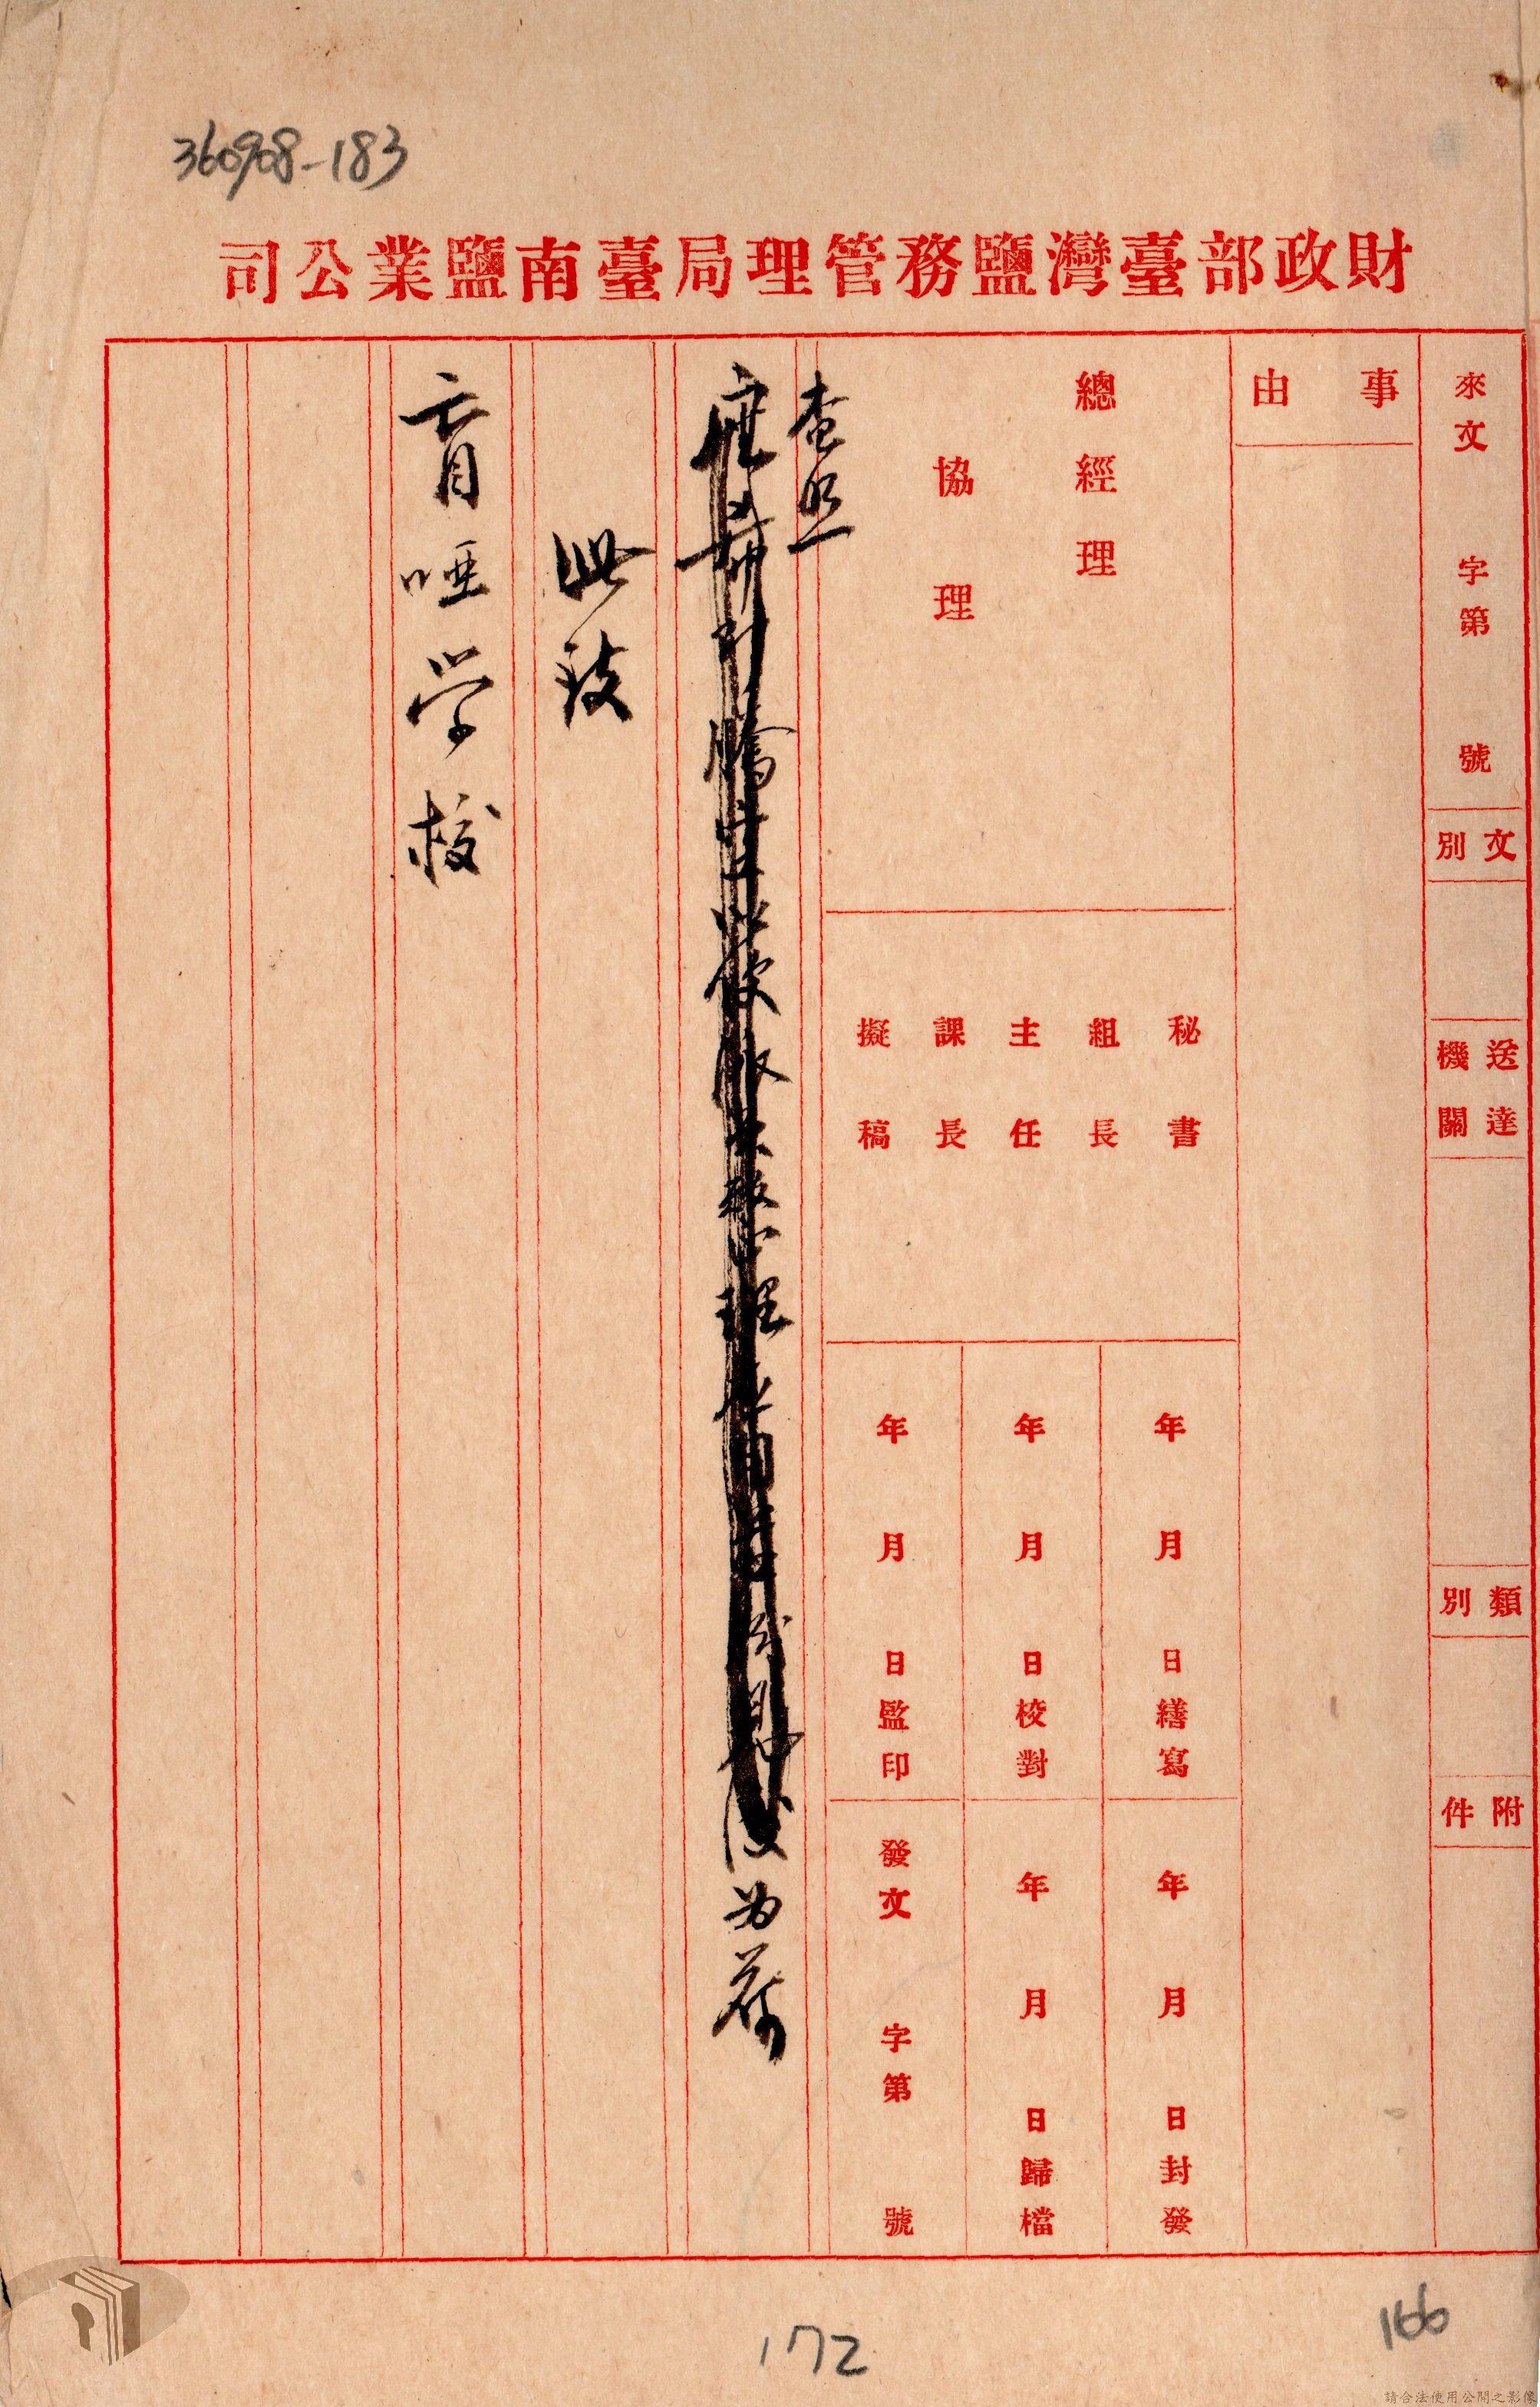 360908-183
財政部臺灣鹽務管理局臺南鹽業公司
來文 字第 號
文別
送達機關
類別
附件
事由
總經理
協理
秘書
組長
主任
課長
擬稿
年 月 日繕寫
年 月 日校對
年 月 日監印
年 月 日封發
年 月 日歸檔
發文 字第 號
查照
為荷
此致
盲啞学校
172
166
請合法使用公開之影像